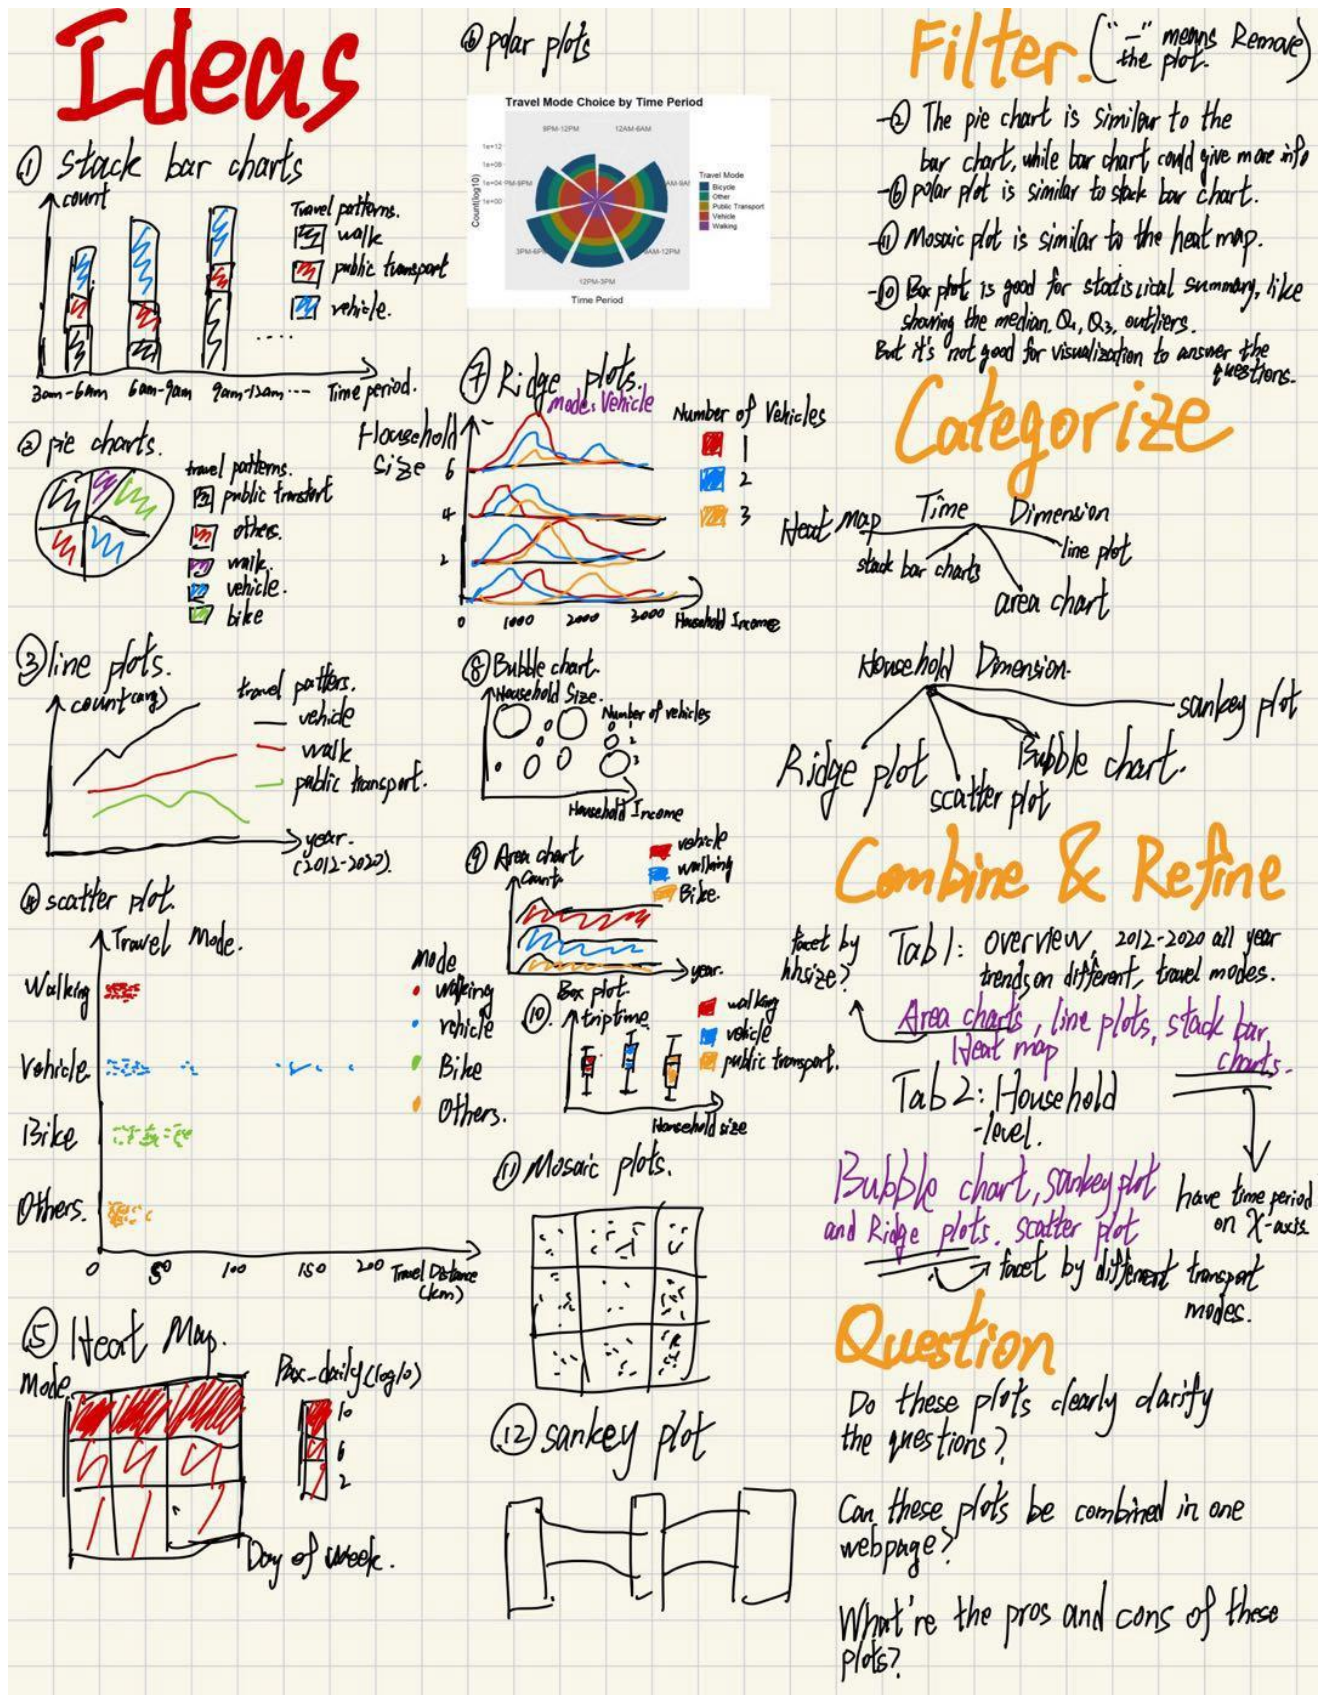 Ideas
① stack bar charts
count
Travel patterns.
walk
public transport
vehicle.
....
3am-6am 6am-9am 9am-12am ... Time period.
② pie charts.
travel patterns.
public transtort
others.
walk.
vehicle.
bike
③ line plots.
count(avg)
travel patters.
vehicle
walk
public transport.
year.
(2012-2020).
④ scatter plot.
Travel Mode.
Walking
Vehicle
Bike
Others.
mode
walking
vehicle
Bike
Others.
0 50 100 150 200 Travel Distance
(km)
⑤ Heat Map.
Mode
Pax_daily(log10)
10
6
2
Day of week.
⑥ polar plots
Travel Mode Choice by Time Period
9PM-12PM 12AM-6AM
1e+12
1e+08
1e+04
1e+00
Count(log10)
PM-9PM
AM-9AM
3PM-6PM
9AM-12PM
12PM-3PM
Time Period
Travel Mode
Bicycle
Other
Public Transport
Vehicle
Walking
⑦ Ridge plots.
mode: Vehicle
Household
Size
6
4
2
Number of Vehicles
1
2
3
0 1000 2000 3000 Household Income
⑧ Bubble chart.
Household Size.
Number of vehicles
1
2
3
Household Income
⑨ Area chart
Count.
vehicle
walking
Bike.
year.
⑩. Box plot.
triptime
walking
vehicle
public transport.
Household size
⑪ Mosaic plots.
⑫ sankey plot
Filter. ("-" means Remove)
the plot.
-② The pie chart is similar to the
bar chart, while bar chart could give more info
-⑥ polar plot is similar to stack bar chart.
-⑪ Mosaic plot is similar to the heat map.
-⑩ Box plot is good for statisical summary, like
showing the median, Q1, Q3, outliers.
But it's not good for visualization to answer the
questions.
Categorize
Time Dimension
Heat Map
stack bar charts
area chart
line plot
Household Dimension
Ridge plot
scatter plot
Bubble chart.
sankey plot
Combine & Refine
Tab 1: overview, 2012-2020 all year
trends on different, travel modes.
facet by
hhsize?
Area charts, line plots, stack bar
Heat map charts.
Tab 2: Household
-level.
Bubble chart, sankey plot
and Ridge plots. scatter plot
have time period
on X-axis
facet by different transport
modes.
Question
Do these plots clearly clarify
the questions?
Can these plots be combined in one
webpage?
What're the pros and cons of these
plots?